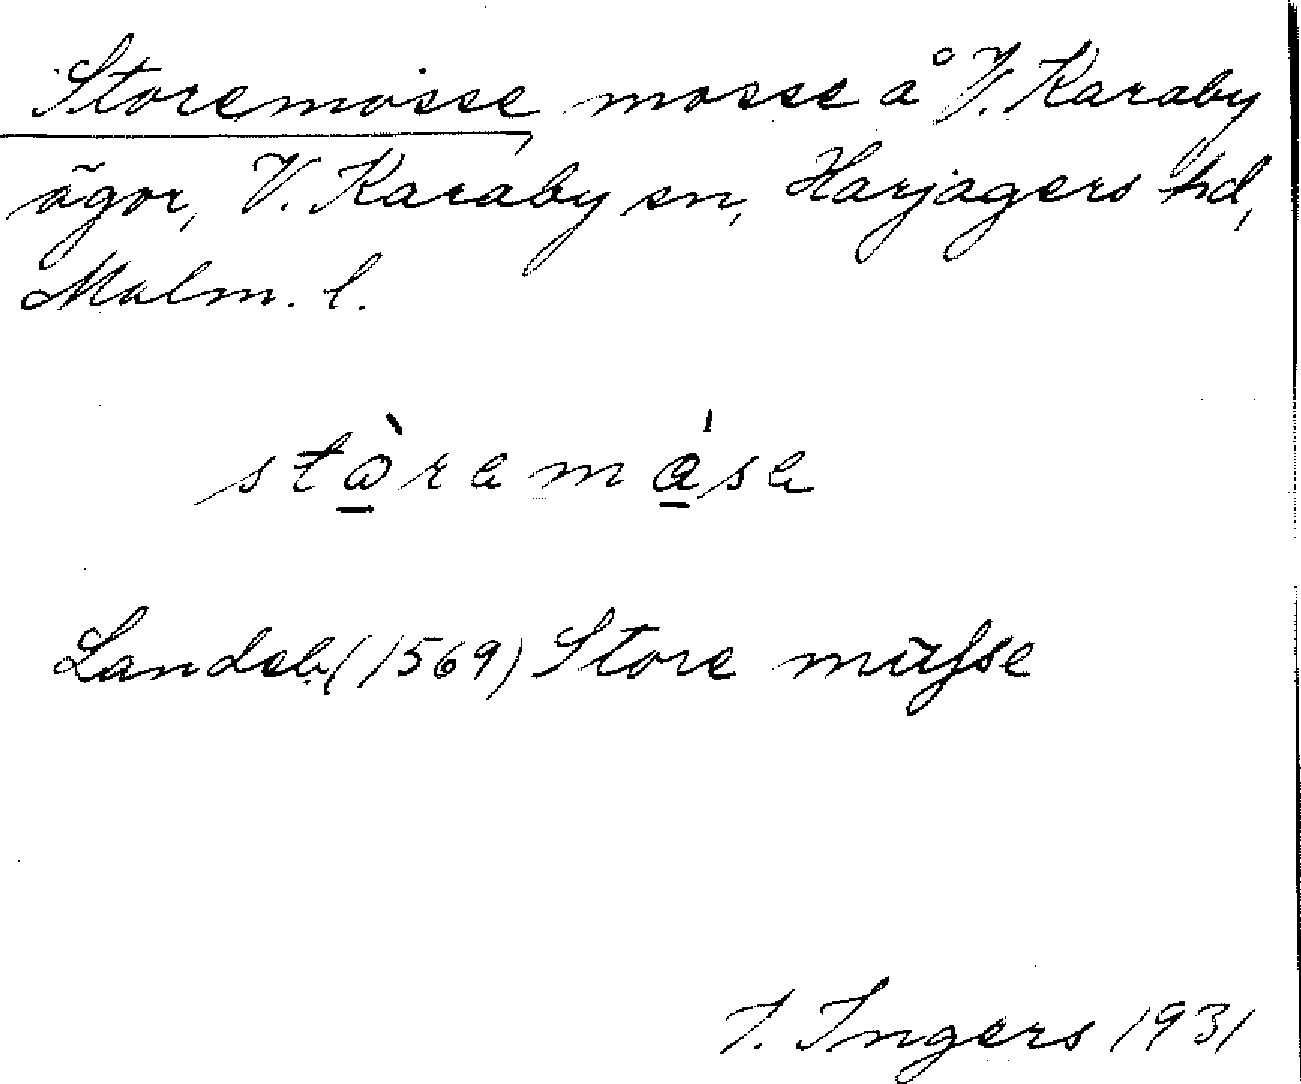 Storemosse, mosse å V. Karaby
ägor, V. Karaby sn, Harjagers hd,
Malm. l.
stò̠ramá̠sa
Landeb. (1569) Store mŭsse
I. Ingers 1931